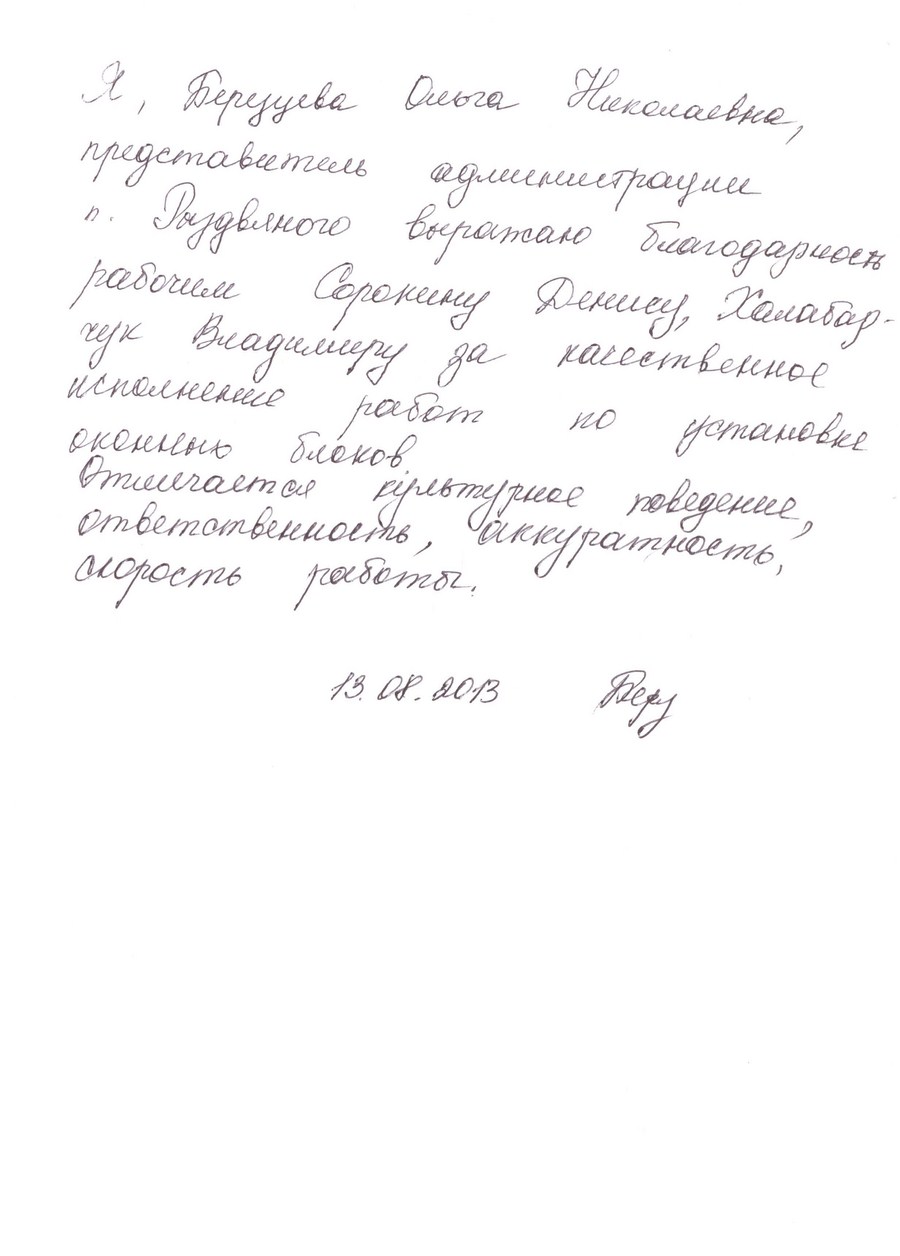 Я, Березуева Ольга Николаевна,
представитель администрации
п. Рыздвяного выражаю благодарность
рабочим Сорокину Денису, Халабар-
чук Владимиру за качественное
исполнение работ по установке
оконных блоков
Отмечается культурное поведение,
ответственность, аккуратность,
скорость работы.
13.08.2013 Берз